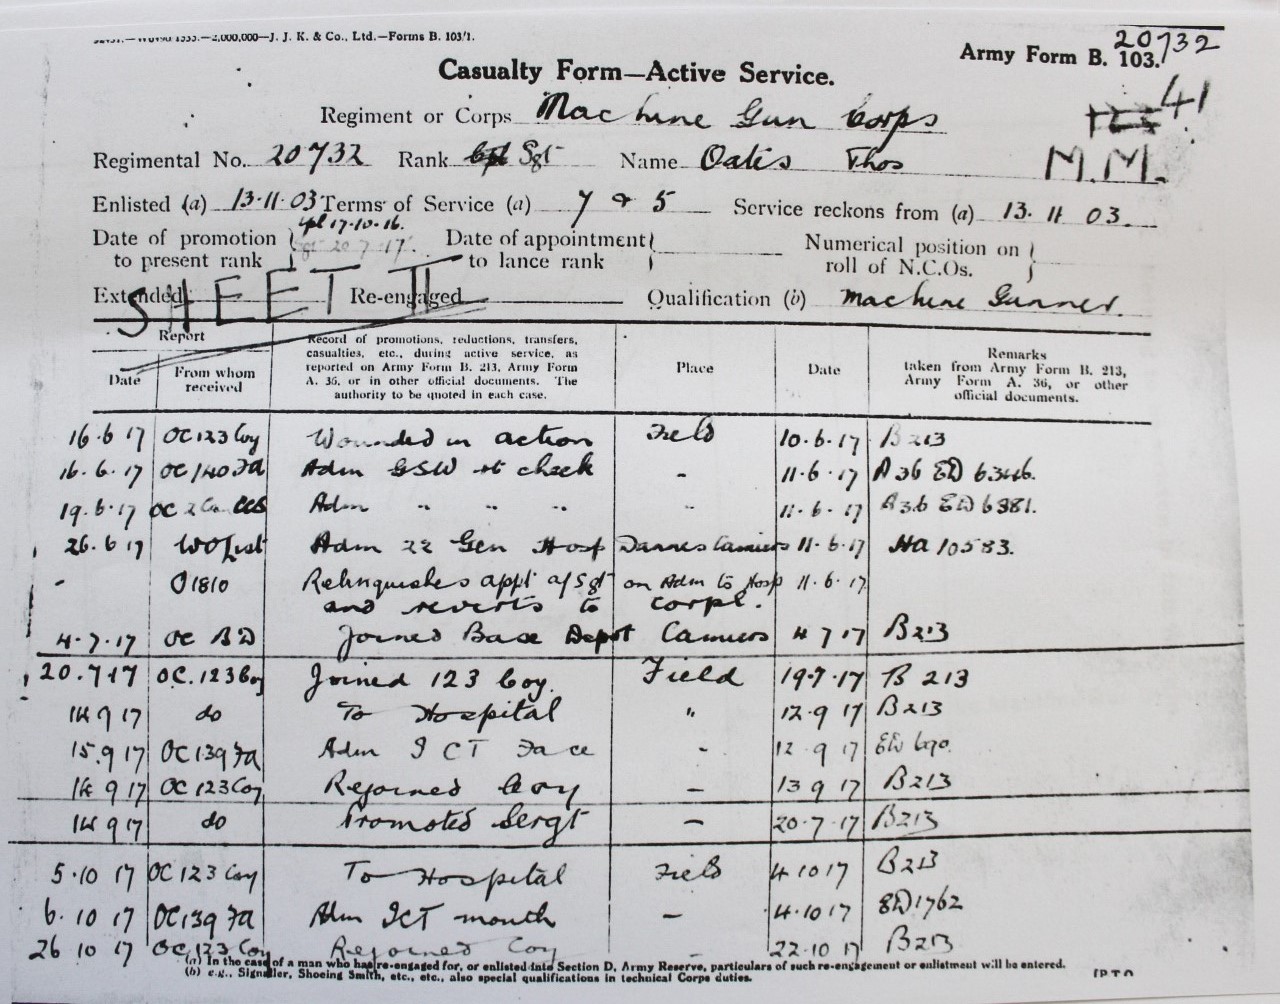 2,000,000—J. J. K. & Co., Ltd.—Forms B. 103/1.
20732
Army Form B. 103.
Casualty Form—Active Service.
41
Regiment or Corps Machine Gun Corps
M.M.
Regimental No. 20732 Rank Sgt Name Oatis Thos
Enlisted (a) 13·11·03 Terms of Service (a) 7 & 5 Service reckons from (a) 13. 11 03.
Date of promotion to present rank } Cpl 17-10-16. Sgt 20 7 17. Date of appointment to lance rank } Numerical position on roll of N.C.Os. }
SHEET II
Extended Re-engaged Qualification (b) Machine Gunner.
Report
Date
From whom received
Record of promotions, reductions, transfers, casualties, etc., during active service, as reported on Army Form B. 213, Army Form A. 36, or in other official documents. The authority to be quoted in each case.
Place
Date
Remarks taken from Army Form B. 213, Army Form A. 36, or other official documents.
16·6 17 OC 123 Coy Wounded in action Field 10·6·17 B 213
16·6·17 OC 140 Fa Adm GSW rt cheek - 11·6·17 A 36 ED 6346.
19·6·17 OC 2 CCS Adm " " " - 11·6·17 A36 ED 6381.
26·6 17 WO List Adm 22 Gen Hosp Dannes Camiers 11·6·17 HA 10583.
- O1810 Relinquishes appt a/Sgt on Adm to Hosp 11·6·17
and reverts to corpl.
4·7·17 OC BD Joined Base Depot Camiers 4 7 17 B213
20.7·17 OC. 123 Coy Joined 123 Coy. Field 19·7·17 B 213
14 9 17 do To Hospital " 12·9 17 B213
15.9 17 OC 139 Fa Adm I C T Face - 12·9 17 ED 690.
14 9 17 OC 123 Coy Rejoined Coy - 13 9 17 B213
14 9 17 do Promoted Sergt - 20·7·17 B213
5·10 17 OC 123 Coy To Hospital Field 4 10 17 B213
6·10 17 OC 139 Fa Adm ICT mouth - 4·10 17 ED 1762
26 10 17 OC 123 Coy Rejoined Coy - 22·10 17 B213
(a) In the case of a man who has re-engaged for, or enlisted into Section D, Army Reserve, particulars of such re-engagement or enlistment will be entered.
(b) e.g., Signaller, Shoeing Smith, etc., etc., also special qualifications in technical Corps duties.
[P.T.O